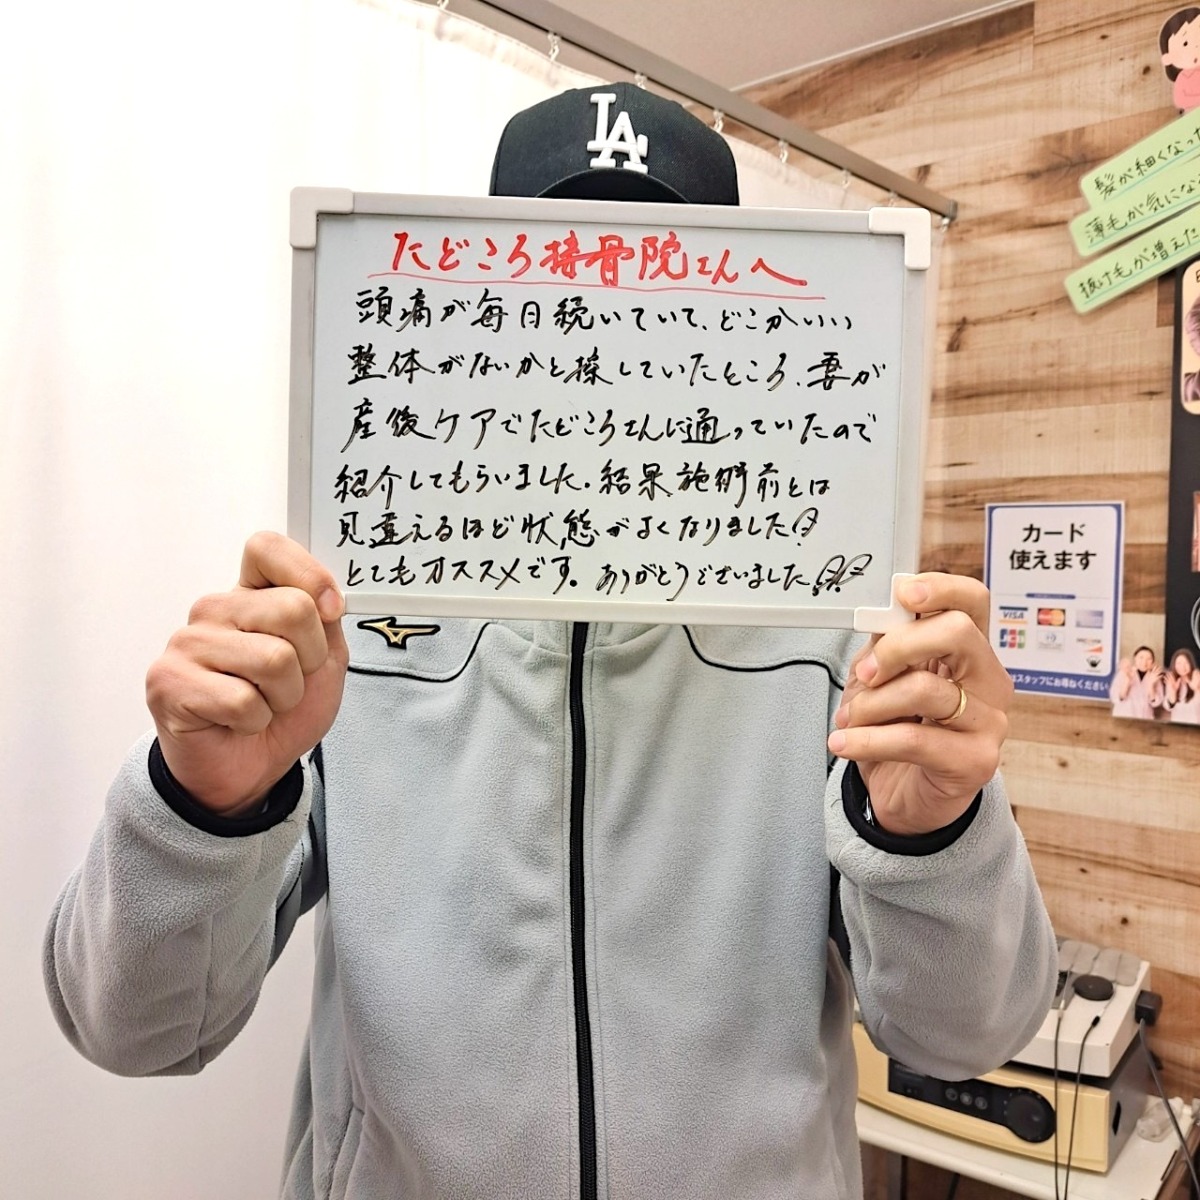 LA
たどころ接骨院さんへ
頭痛が毎日続いていて、どこかいい
整体がないかと探していたところ、妻が
産後ケアでたどころさんに通っていたので
紹介してもらいました。結果施術前とは
見違えるほど状態がよくなりました!
とてもオススメです。ありがとうございました!!
髪が細くなった
薄毛が気になる
抜け毛が増えた
カード
使えます
VISA
MasterCard
JCB
はスタッフにお尋ねください